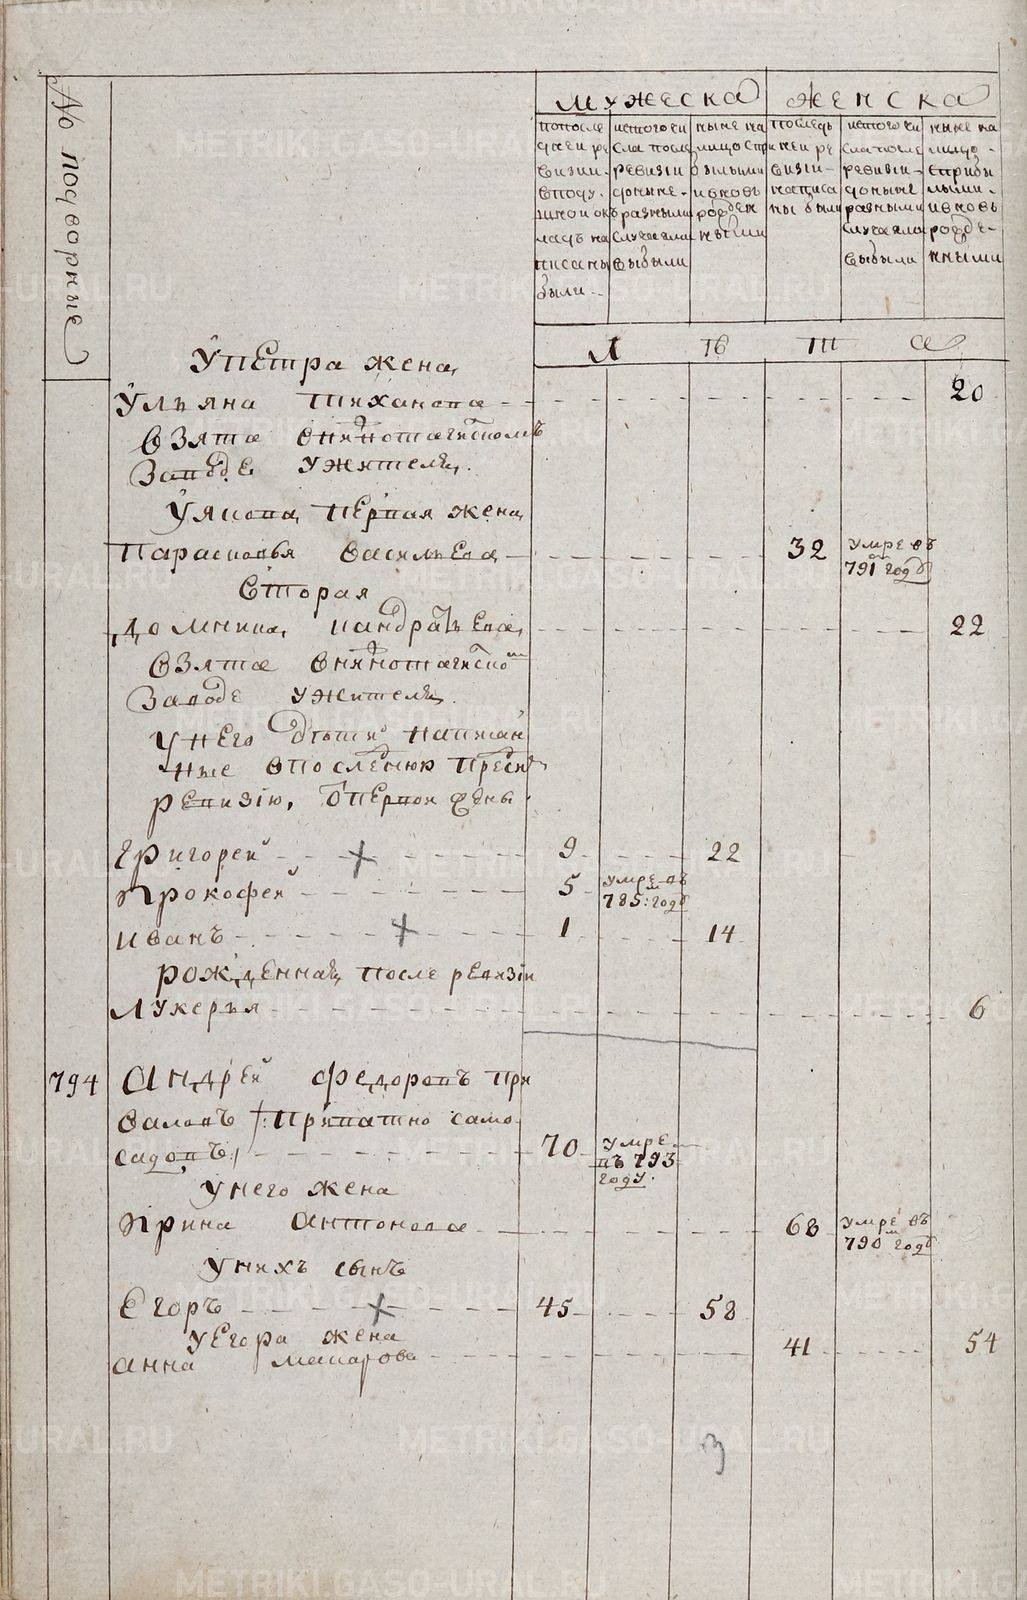 № подворные
мужеска женска
попосле дней ревизии в подушной окладъ написаны были
исгого числа после ревизии доныне разными случаями выбыли
ныне на лицо с прибылыми и вновь рожденными
последней ревизии написаны были
исгого числа после ревизии доныне разными случаями выбыли
ныне на лицо с прибылыми и вновь рожденными
Л ѣ т а
У петра жена
Ульяна Тиханова 20
Взята в нижнотагилскомъ
Заводе у жителя.
У якова первая жена
Парасковья Васильева 32 умре въ
791 году
Вторая
Домника кандратьева 22
Взята в нижнотагилском
Заводе у жителя.
у него дети написан
ные в последнюю пред сим
ревизію, от первой жены.
Григорей 9 22
Прокофей 5 умре въ
785: году
иванъ 1 14
рожденная после ревизіи
Лукерья 6
794 Андрей федоровъ при
валовъ /: припатно само
садовъ:/ 70 умре
въ 793
году.
У него жена
Ирина антонова 68 умре въ
790 году
У нихъ сынъ
Егоръ 45 58
у Егора жена 41 54
анна макарова
3
METRIKI.GASO-URAL.RU